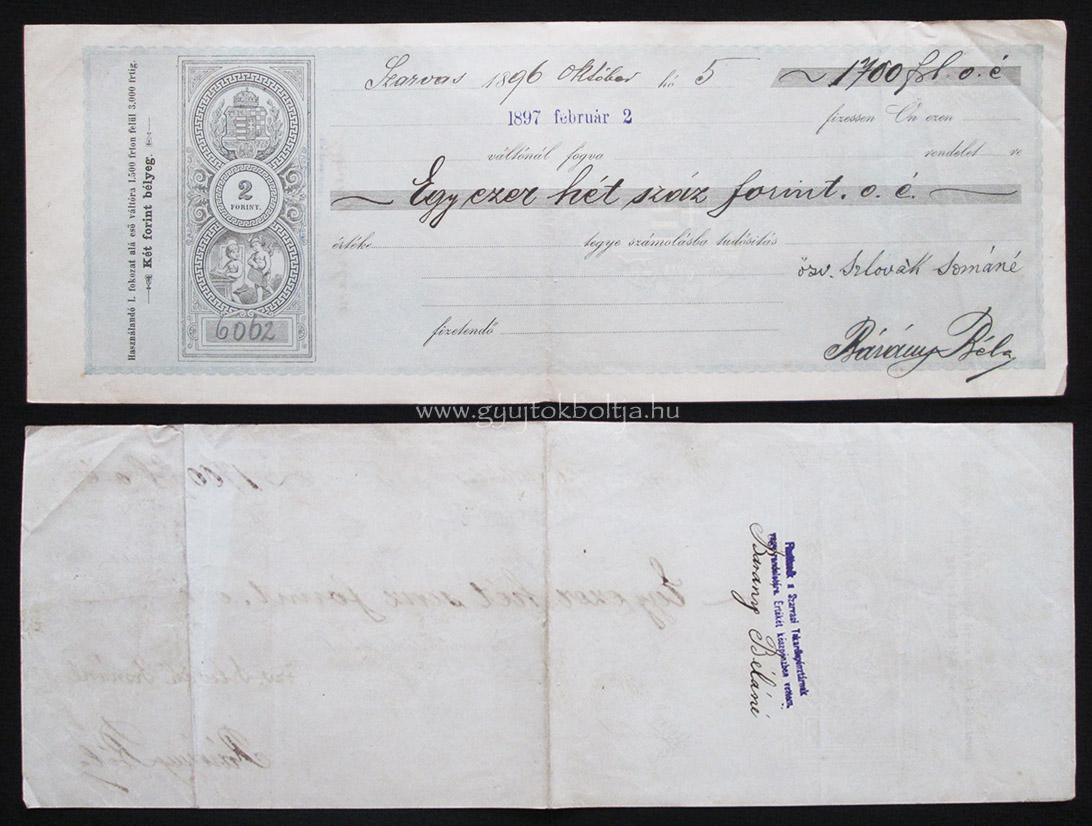 Használandó I. fokozat alá eső váltóra 1.500 frton felül 3.000 frtig.
Két forint bélyeg.
2
FORINT.
6062
Szarvas 1896 október hó 5 1700 frt. o. é
1897 február 2 fizessen Ön ezen
váltónál fogva rendelet re
Egy ezer hét száz forint. o. é.
értéke tegye számolásba tudósitás
özv. Szlovák Sománé
fizetendő
Bárány Béla
www.gyujtokboltja.hu
Fizettessék a Szarvasi Takarékpénztárnak
vagy rendeletére. Értékét készpénzben vettem.
Bárány Béláné